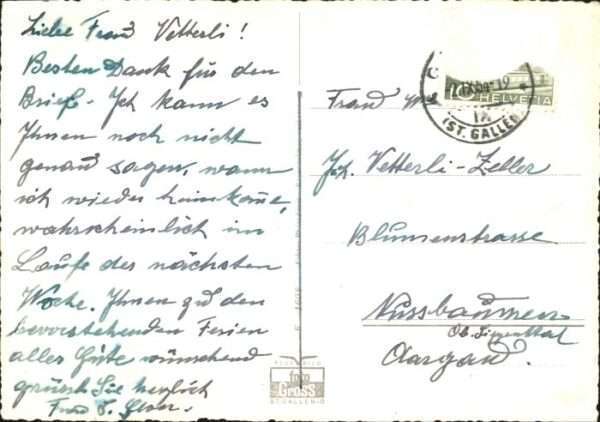 Liebe Frau Vetterli!
Besten Dank für den
Brief. Ich kann es
Ihnen noch nicht
genau sagen, wann
ich wieder heimkome,
wahrscheinlich im
Laufe der nächsten
Woche. Ihnen zu den
bevorstehenden Ferien
alles Gute wünschend
grüsst Sie herzlich
Frau
HELVETIA
(ST. GALLEN)
Frau
Joh. Vetterli-Zeller
Blumenstrasse
Nussbaumen
Ob. Siggenthal
Aargau.
foto
Gross
ST. GALLEN